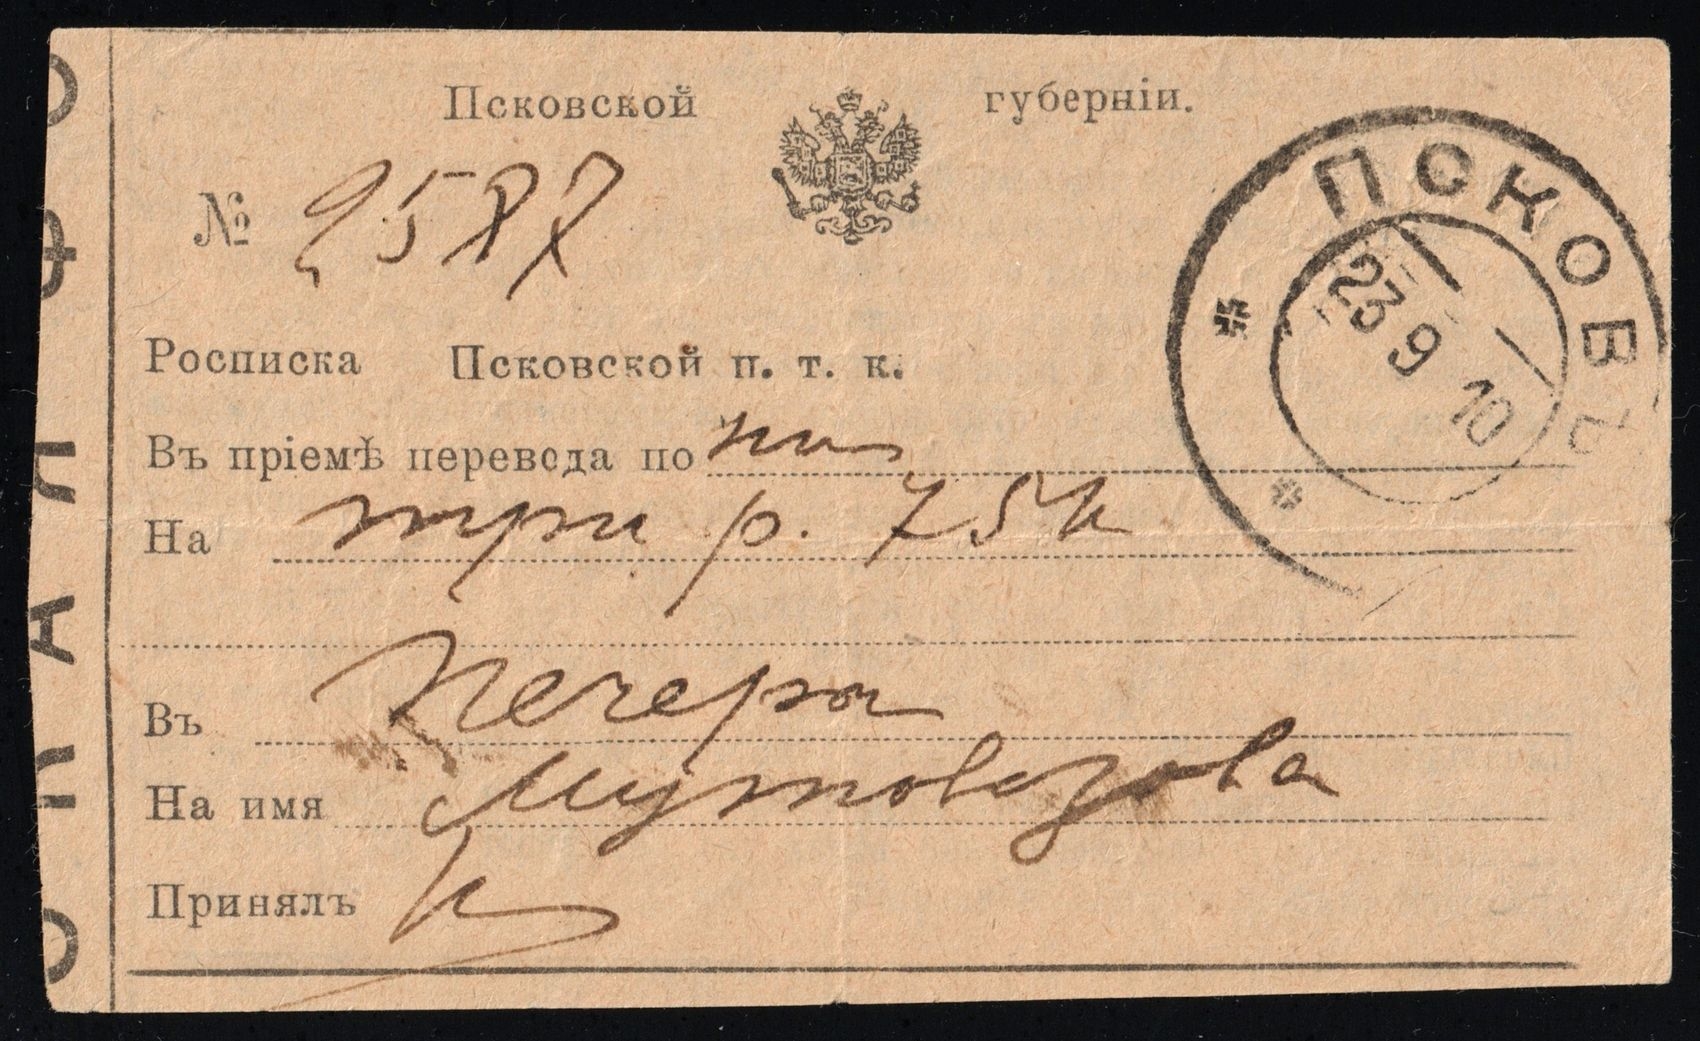 Псковской губерніи.
№ 9588
Росписка Псковской п. т. к.
Въ пріемѣ перевода по
На три р. 75 к
Въ Печеры
На имя
Принялъ
ПСКОВЪ
23 9 10